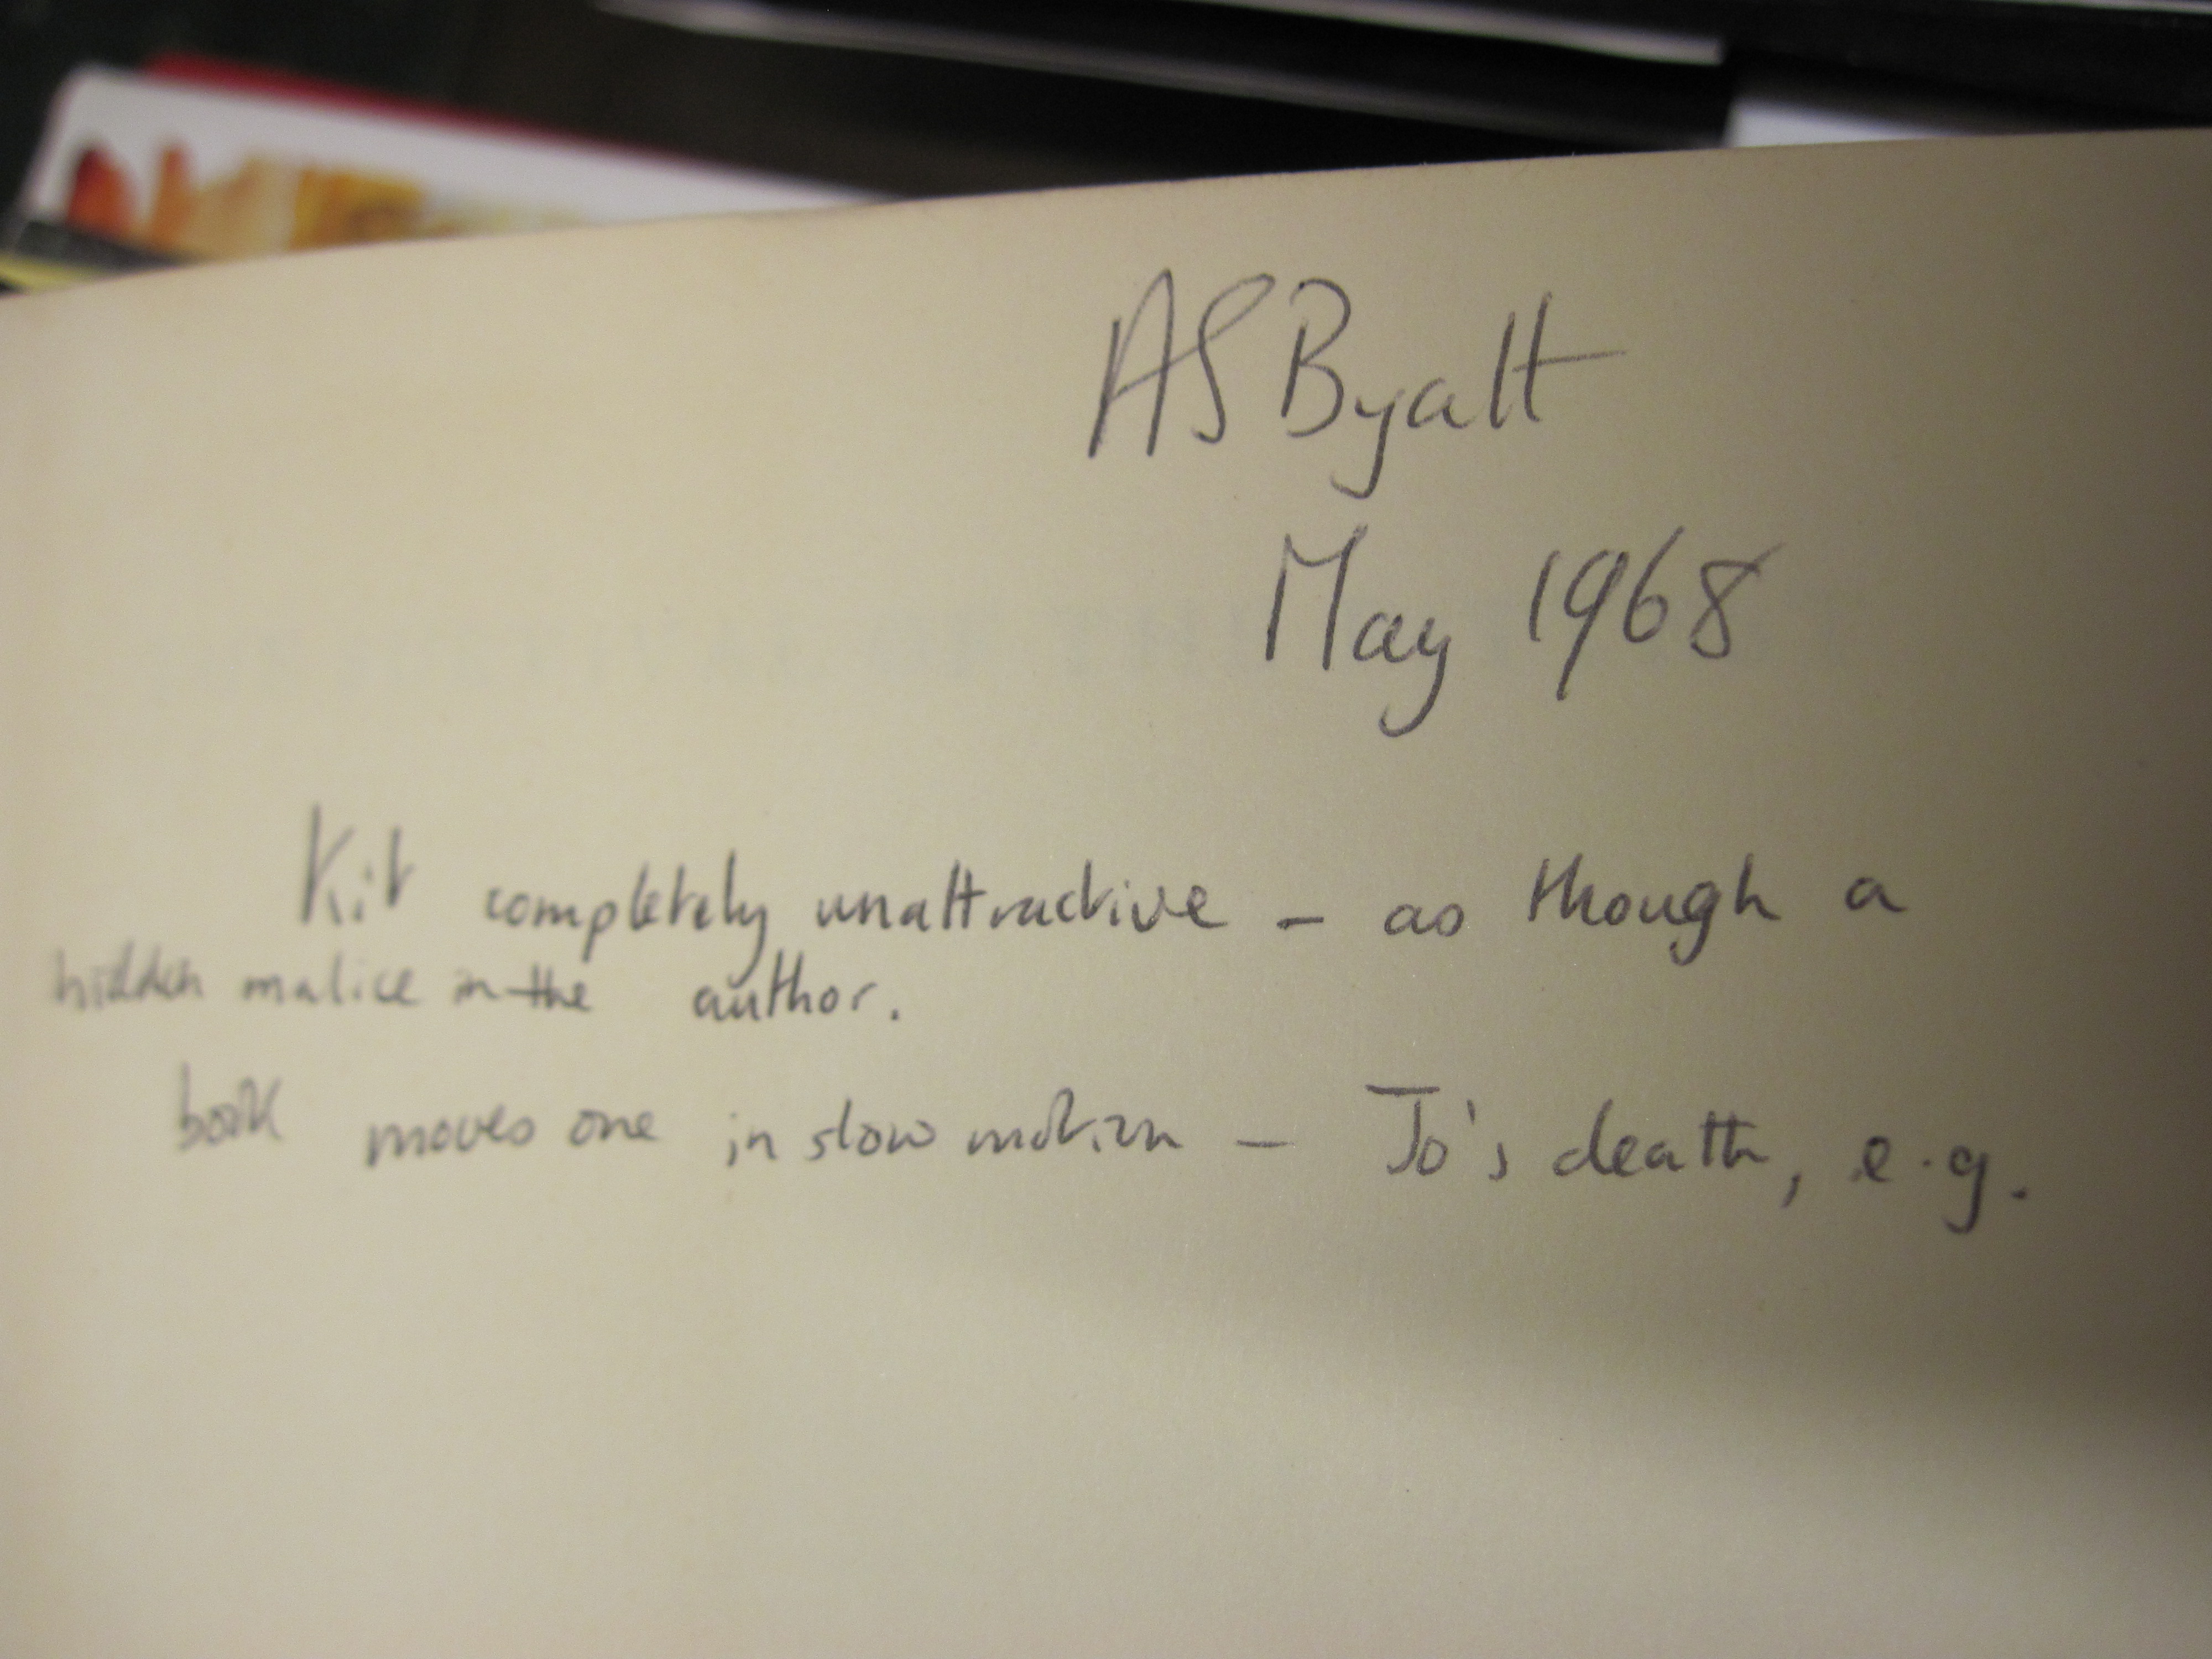 AS Byatt
May 1968
Kit completely unattractive – as though a
hidden malice in the author.
book moves one in slow motion – Jo's death, e.g.